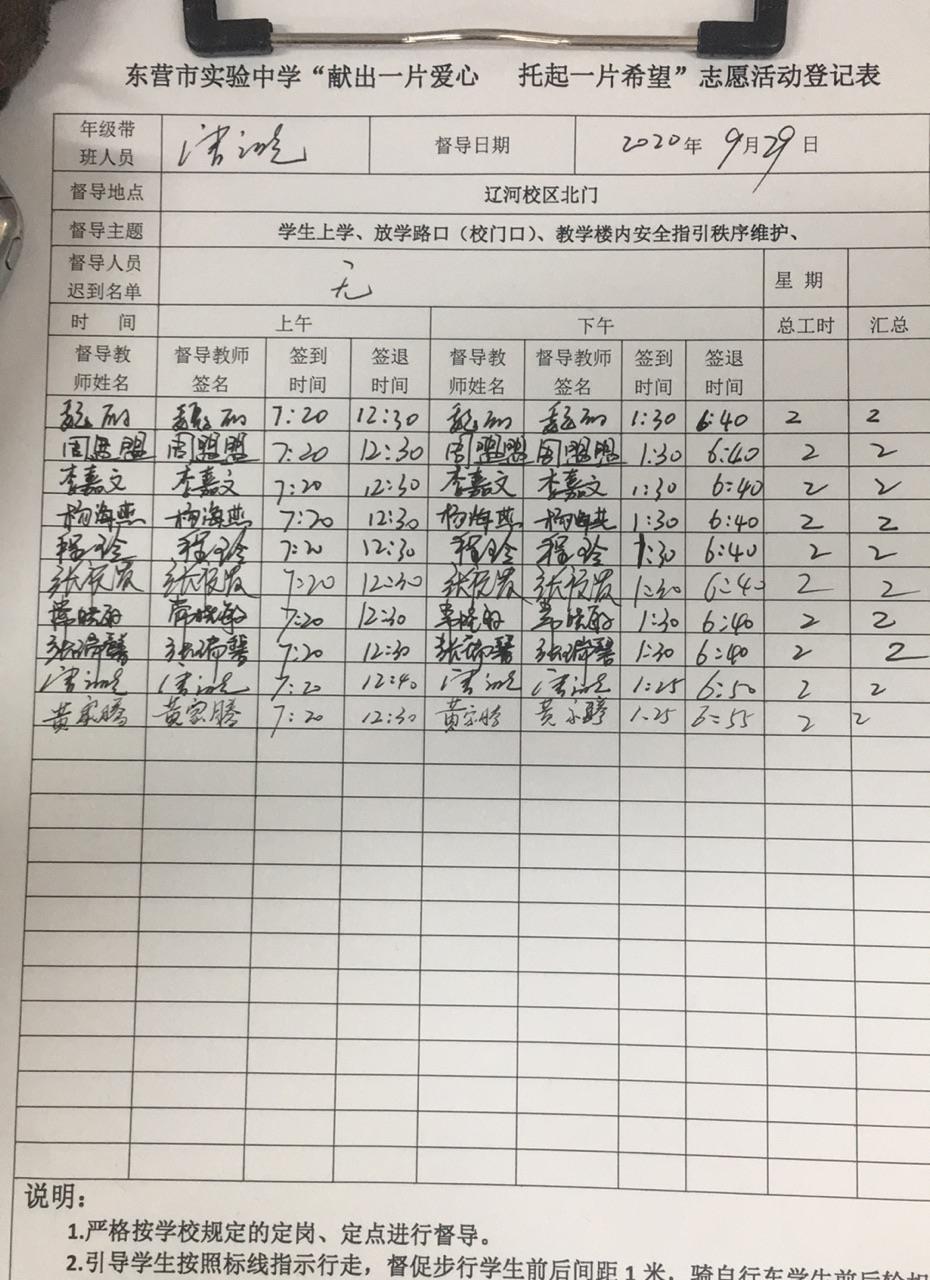 东营市实验中学“献出一片爱心 托起一片希望”志愿活动登记表
年级带班人员 督导日期 2020年 9月29日
督导地点 辽河校区北门
督导主题 学生上学、放学路口（校门口）、教学楼内安全指引秩序维护、
督导人员迟到名单 无 星 期
时 间 上午 下午 总工时 汇总
督导教师姓名 督导教师签名 签到时间 签退时间 督导教师姓名 督导教师签名 签到时间 签退时间
7:20 12:30 1:30 6:40 2 2
周盟盟 周盟盟 7:20 12:30 周盟盟 周盟盟 1:30 6:40 2 2
李嘉文 李嘉文 7:20 12:30 李嘉文 李嘉文 1:30 6:40 2 2
杨海燕 杨海燕 7:20 12:30 杨海燕 杨海燕 1:30 6:40 2 2
程玲 程玲 7:20 12:30 程玲 程玲 1:30 6:40 2 2
7:20 12:30 1:30 6:40 2 2
7:20 12:30 1:30 6:40 2 2
张瑞馨 张瑞馨 7:20 12:30 张瑞馨 张瑞馨 1:30 6:40 2 2
7:20 12:40 1:25 6:50 2 2
黄家腾 黄家腾 7:20 12:30 黄家腾 黄家腾 1:25 6:55 2 2
说明：
1.严格按学校规定的定岗、定点进行督导。
2.引导学生按照标线指示行走，督促步行学生前后间距1米，骑自行车学生前后轮相